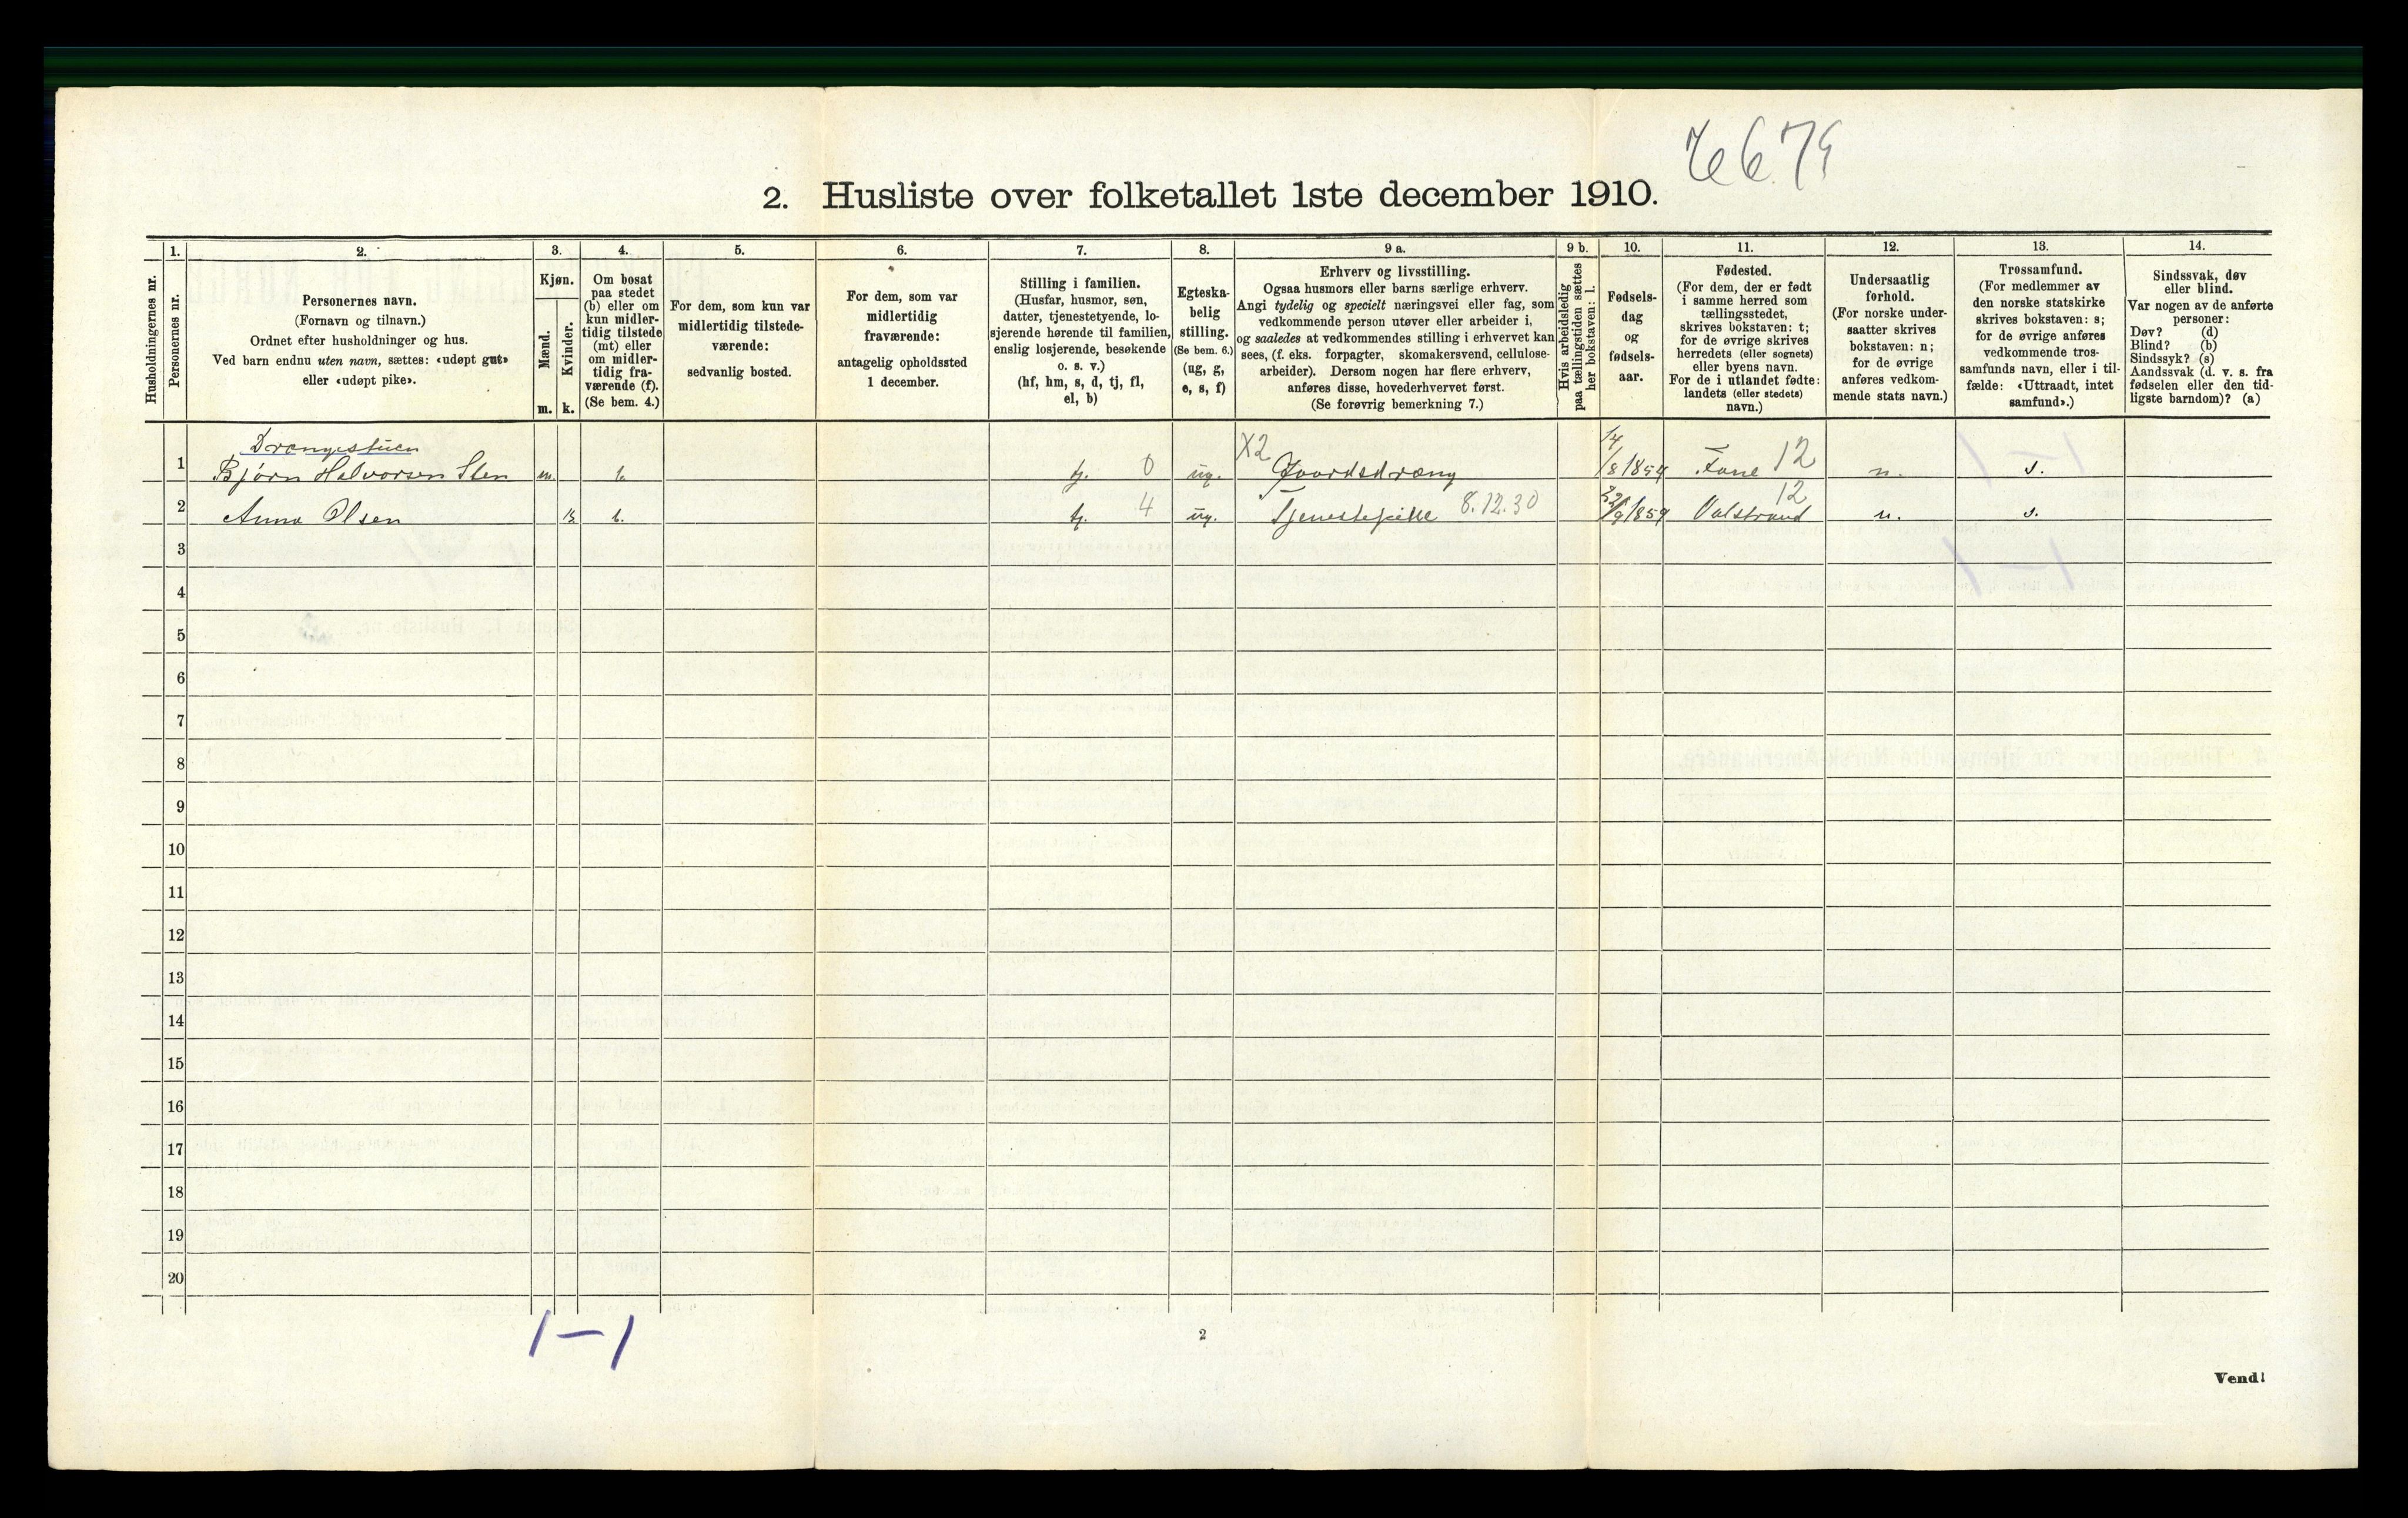 7679
2. Husliste over folketallet 1ste december 1910.
Husholdningernes nr.
1.
Personernes nr.
2.
Personernes navn.
(Fornavn og tilnavn.)
Ordnet efter husholdninger og hus.
Ved barn endnu uten navn, sættes: «udøpt gut»
eller «udøpt pike».
3.
Kjøn.
Mænd.
Kvinder.
m. k.
4.
Om bosat
paa stedet
(b) eller om
kun midler-
tidig tilstede
(mt) eller
om midler-
tidig fra-
værende (f).
(Se bem. 4.)
5.
For dem, som kun var
midlertidig tilstede-
værende:
sedvanlig bosted.
6.
For dem, som var
midlertidig
fraværende:
antagelig opholdssted
1 december.
7.
Stilling i familien.
(Husfar, husmor, søn,
datter, tjenestetyende, lo-
sjerende hørende til familien,
enslig losjerende, besøkende
o. s. v.)
(hf, hm, s, d, tj, fl,
el, b)
8.
Egteska-
belig
stilling.
(Se bem. 6.)
(ug, g,
e, s, f)
9 a.
Erhverv og livsstilling.
Ogsaa husmors eller barns særlige erhverv.
Angi tydelig og specielt næringsvei eller fag, som
vedkommende person utøver eller arbeider i,
og saaledes at vedkommendes stilling i erhvervet kan
sees, (f. eks. forpagter, skomakersvend, cellulose-
arbeider). Dersom nogen har flere erhverv,
anføres disse, hovederhvervet først.
(Se forøvrig bemerkning 7.)
9 b.
Hvis arbeidsledig
paa tællingstiden sættes
her bokstaven: l.
10.
Fødsels-
dag
og
fødsels-
aar.
11.
Fødested.
(For dem, der er født
i samme herred som
tællingsstedet,
skrives bokstaven: t;
for de øvrige skrives
herredets (eller sognets)
eller byens navn.
For de i utlandet fødte:
landets (eller stedets)
navn.)
12.
Undersaatlig
forhold.
(For norske under-
saatter skrives
bokstaven: n;
for de øvrige
anføres vedkom-
mende stats navn.)
13.
Trossamfund.
(For medlemmer av
den norske statskirke
skrives bokstaven: s;
for de øvrige anføres
vedkommende tros-
samfunds navn, eller i til-
fælde: «Uttraadt, intet
samfund».)
14.
Sindssvak, døv
eller blind.
Var nogen av de anførte
personer:
Døv? (d)
Blind? (b)
Sindssyk? (s)
Aandssvak (d. v. s. fra
fødselen eller den tid-
ligste barndom)? (a)
Drengestuen
1 Bjørn Halvorsen Sten m. b. tj. 0 ug. X2 Gaardsdræng 14/8 1854 Fane 12 n. s.
2 Anna Olsen k b. tj. 4 ug. Tjenestepike 8.12.30 /9 1859 Valstrand 12 n. s.
3
4
5
6
7
8
9
10
11
12
13
14
15
16
17
18
19
20
1-1
2
Vend!